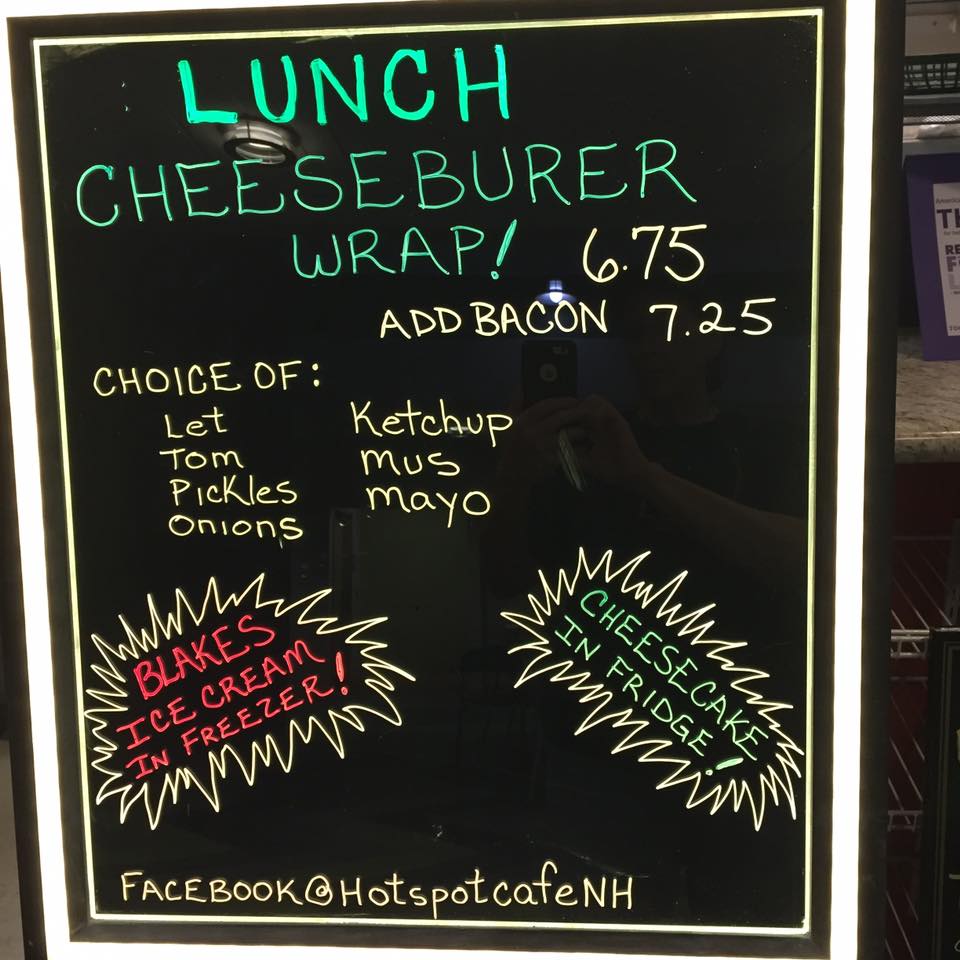 LUNCH
CHEESEBURER
WRAP! 6.75
ADD BACON 7.25
CHOICE OF:
Let Ketchup
Tom Mus
Pickles Mayo
Onions
BLAKES
ICE CREAM
IN FREEZER!
CHEESECAKE
IN FRIDGE!
FACEBOOK@HotspotcafeNH